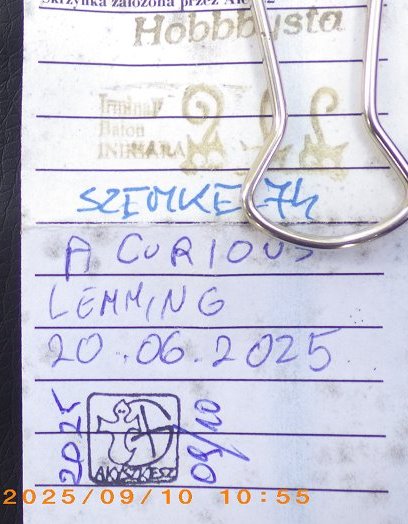 Skrzynka założona przez Al
Hobbbysta
Irminall
Baton
ININSARA
SZEMKE 74
A CURIOUS
LEMMING
20.06.2025
2025
AKYSZKIESZ
09/10
2025/09/10 10:55